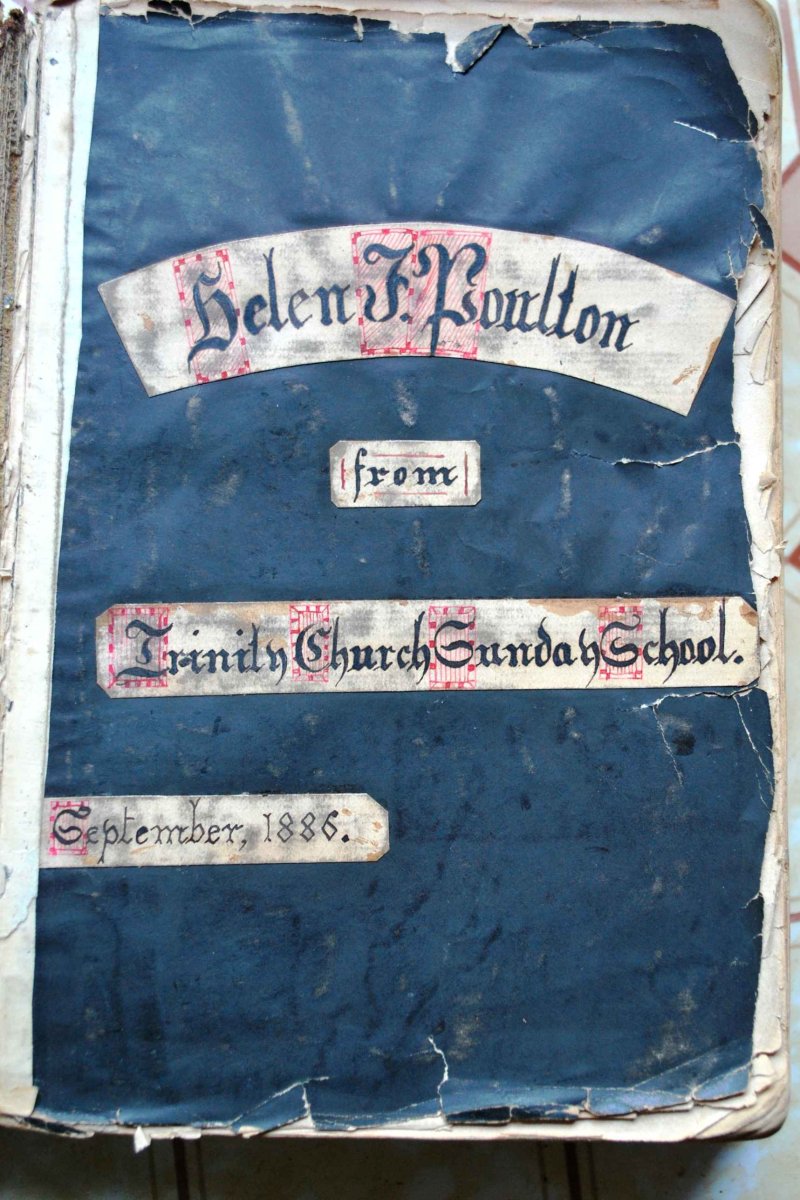 Helen F. Poulton
from
Trinity Church Sunday School.
September, 1886.